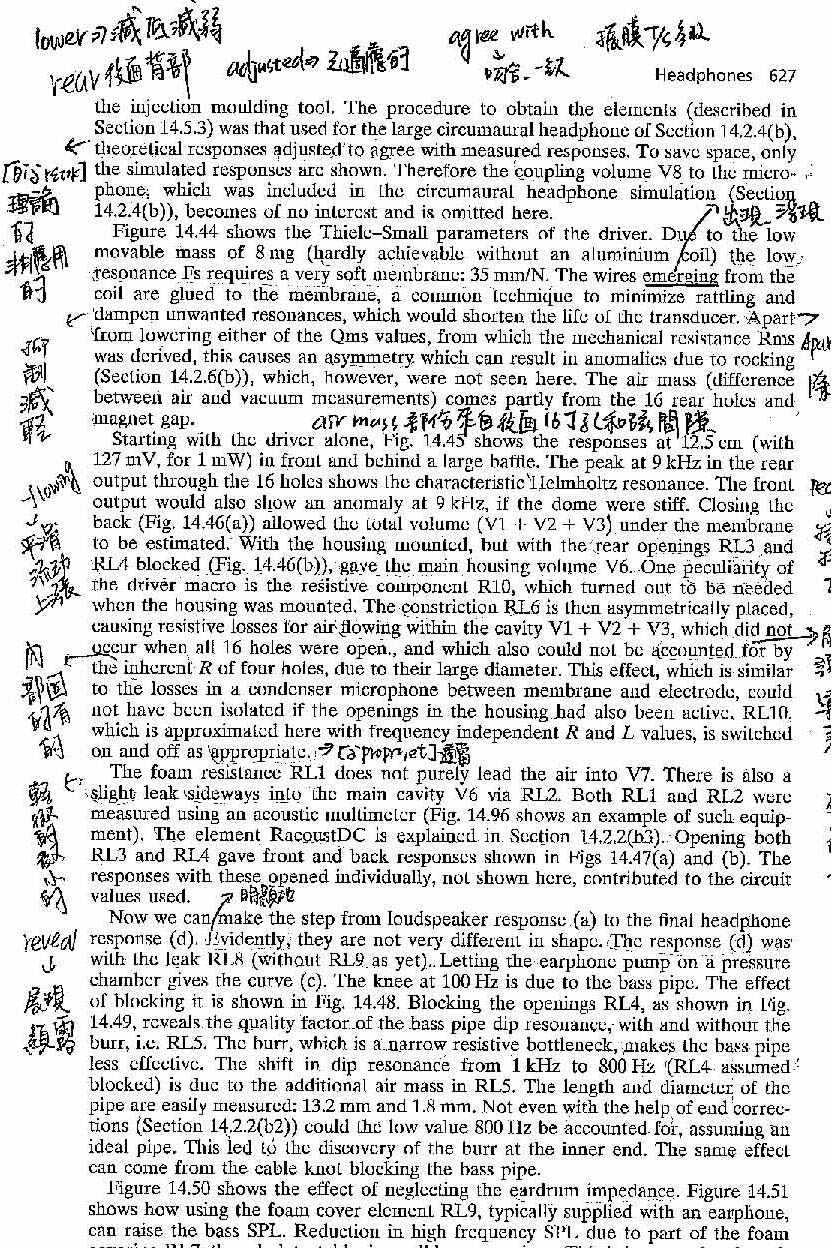 lower⇒減低減弱
agree with
rear後面背部
adjusted⇒
吻合
Headphones 627
the injection moulding tool. The procedure to obtain the elements (described in
Section 14.5.3) was that used for the large circumaural headphone of Section 14.2.4(b),
theoretical responses adjusted to agree with measured responses. To save space, only
the simulated responses are shown. Therefore the coupling volume V8 to the micro-
phone, which was included in the circumaural headphone simulation (Section
14.2.4(b)), becomes of no interest and is omitted here.
理論
的
非應用
的
出現
Figure 14.44 shows the Thiele–Small parameters of the driver. Due to the low
movable mass of 8 mg (hardly achievable without an aluminium coil) the low
resonance Fs requires a very soft membrane: 35 mm/N. The wires emerging from the
coil are glued to the membrane, a common technique to minimize rattling and
dampen unwanted resonances, which would shorten the life of the transducer. Apart
from lowering either of the Qms values, from which the mechanical resistance Rms
was derived, this causes an asymmetry which can result in anomalies due to rocking
(Section 14.2.6(b)), which, however, were not seen here. The air mass (difference
between air and vacuum measurements) comes partly from the 16 rear holes and
magnet gap.
air mass 部份來自後面16个孔和磁間隙
抑
制
減
輕
除
Starting with the driver alone, Fig. 14.45 shows the responses at 12.5 cm (with
127 mV, for 1 mW) in front and behind a large baffle. The peak at 9 kHz in the rear
output through the 16 holes shows the characteristic Helmholtz resonance. The front
output would also show an anomaly at 9 kHz, if the dome were stiff. Closing the
back (Fig. 14.46(a)) allowed the total volume (V1 + V2 + V3) under the membrane
to be estimated. With the housing mounted, but with the rear openings RL3 and
RL4 blocked (Fig. 14.46(b)), gave the main housing volume V6. One peculiarity of
the driver macro is the resistive component R10, which turned out to be needed
when the housing was mounted. The constriction RL6 is then asymmetrically placed,
causing resistive losses for air flowing within the cavity V1 + V2 + V3, which did not
occur when all 16 holes were open., and which also could not be accounted for by
the inherent R of four holes, due to their large diameter. This effect, which is similar
to the losses in a condenser microphone between membrane and electrode, could
not have been isolated if the openings in the housing had also been active. RL10,
which is approximated here with frequency independent R and L values, is switched
on and off as appropriate.
flowing
平滑
流动
上漲
內
部固
的有
的
The foam resistance RL1 does not purely lead the air into V7. There is also a
slight leak sideways into the main cavity V6 via RL2. Both RL1 and RL2 were
measured using an acoustic multimeter (Fig. 14.96 shows an example of such equip-
ment). The element RacoustDC is explained in Section 14.2.2(b3). Opening both
RL3 and RL4 gave front and back responses shown in Figs 14.47(a) and (b). The
responses with these opened individually, not shown here, contributed to the circuit
values used.
Now we can make the step from loudspeaker response (a) to the final headphone
response (d). Evidently, they are not very different in shape. The response (d) was
with the leak RL8 (without RL9 as yet). Letting the earphone pump on a pressure
chamber gives the curve (c). The knee at 100 Hz is due to the bass pipe. The effect
of blocking it is shown in Fig. 14.48. Blocking the openings RL4, as shown in Fig.
14.49, reveals the quality factor of the bass pipe dip resonance, with and without the
burr, i.e. RL5. The burr, which is a narrow resistive bottleneck, makes the bass pipe
less effective. The shift in dip resonance from 1 kHz to 800 Hz (RL4 assumed
blocked) is due to the additional air mass in RL5. The length and diameter of the
pipe are easily measured: 13.2 mm and 1.8 mm. Not even with the help of end correc-
tions (Section 14.2.2(b2)) could the low value 800 Hz be accounted for, assuming an
ideal pipe. This led to the discovery of the burr at the inner end. The same effect
can come from the cable knot blocking the bass pipe.
reveal
展現
顯露
Figure 14.50 shows the effect of neglecting the eardrum impedance. Figure 14.51
shows how using the foam cover element RL9, typically supplied with an earphone,
can raise the bass SPL. Reduction in high frequency SPL due to part of the foam